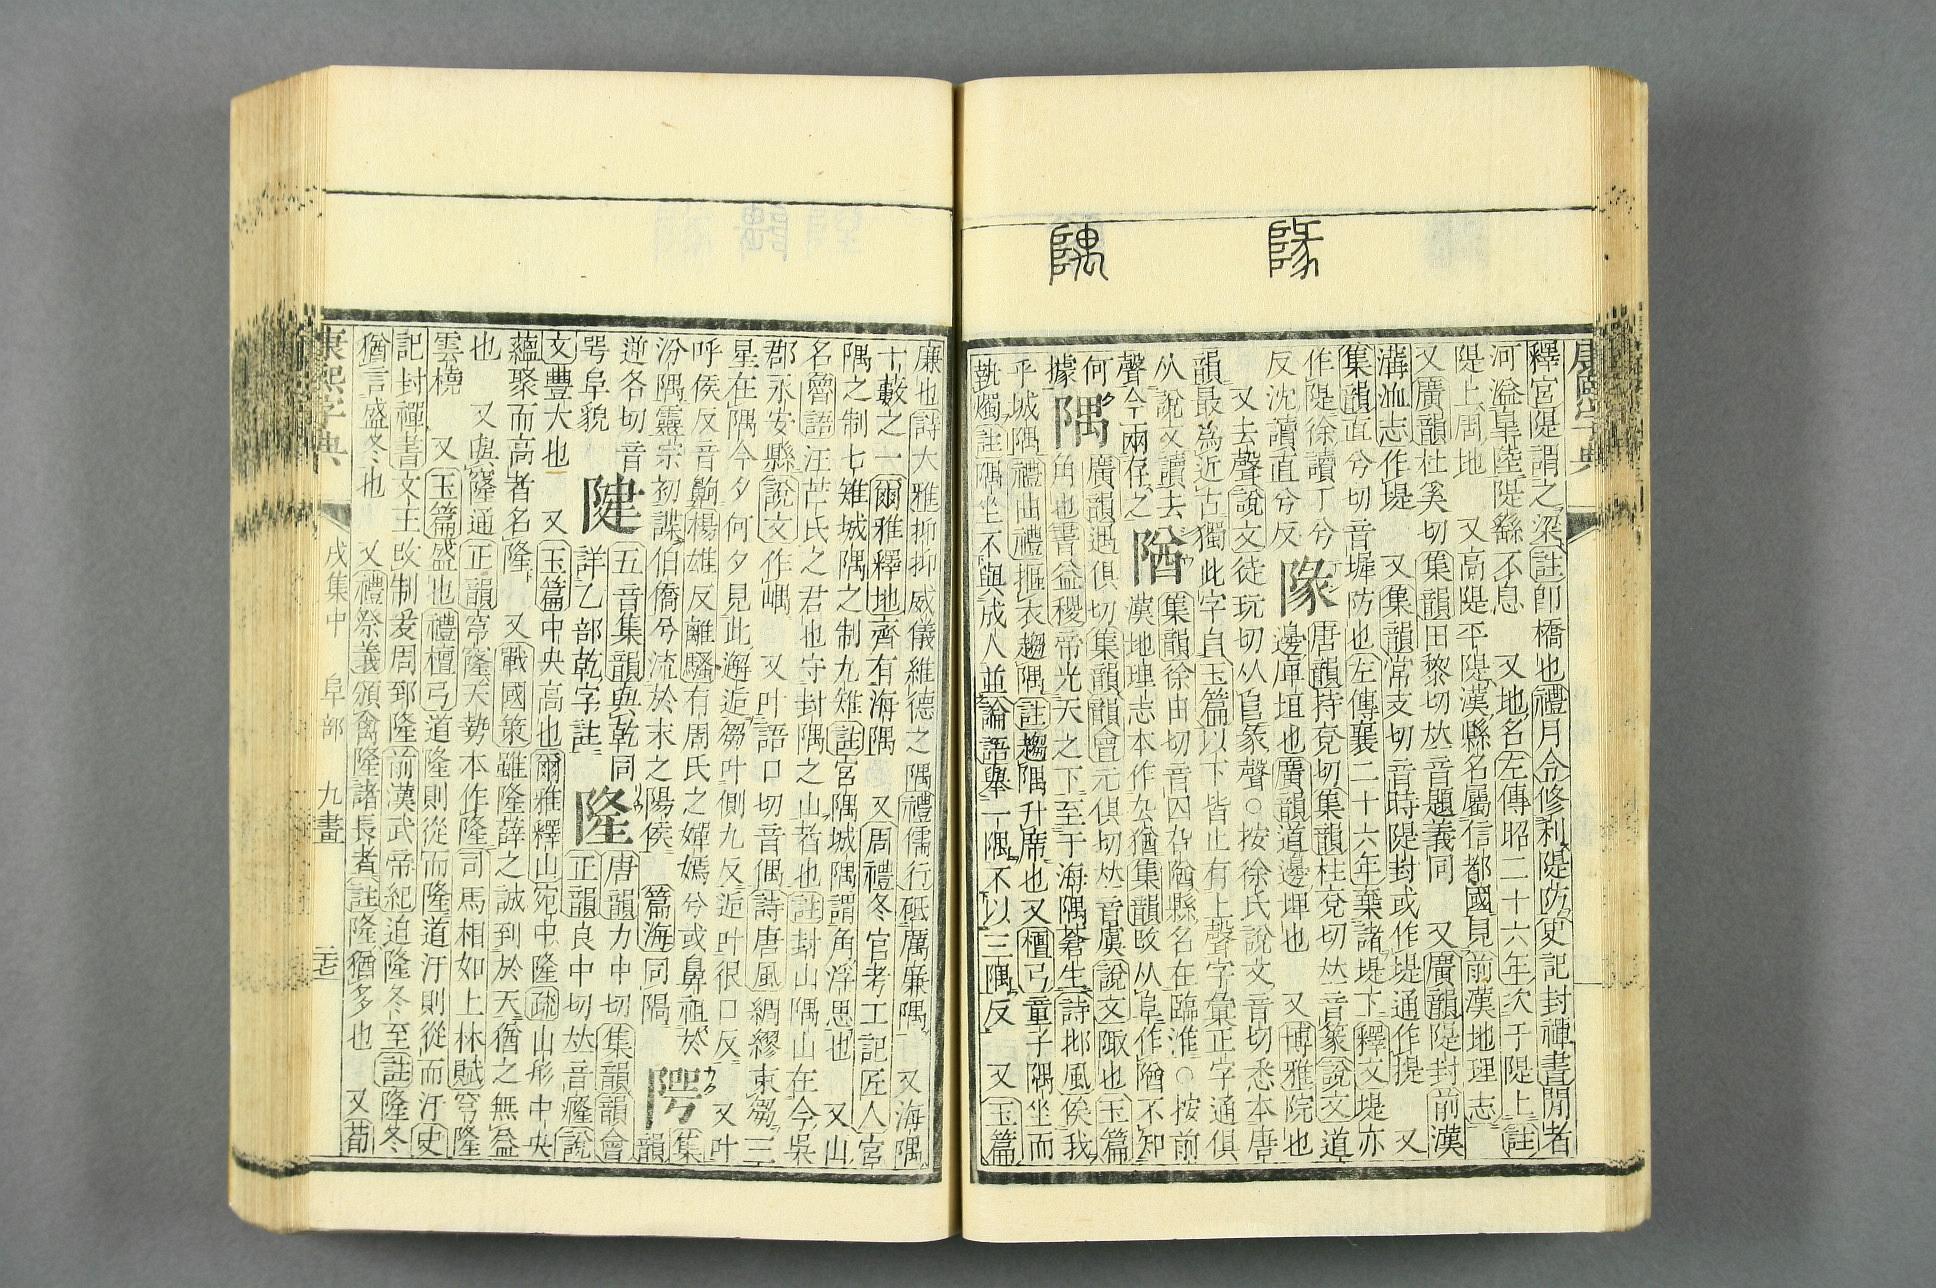 隊 隅
康熙字典
釋宮隄謂之梁註卽橋也禮月令修利隄防史記封禪書聞者
河溢皐陸隄繇不息 又地名左傳昭二十六年次于隄上註
隄上周地 又高隄平隄漢縣名屬信都國見前漢地理志
又廣韻杜奚切集韻田黎切𠀤音題義同 又廣韻隄封前漢
溝洫志作堤 又集韻常支切音時隄封或作堤通作提 又
集韻直兮切音墀防也左傳襄二十六年棄諸堤下釋文堤亦
作隄徐讀丁兮
反沈讀直兮反
隊
唐韻持兗切集韻柱兗切𠀤音篆說文道
邊庳垣也廣韻道邊埤也 又博雅院也
又去聲說文徒玩切从𨸏彖聲○按徐氏說文音切悉本唐
韻最爲近古獨此字自玉篇以下皆止有上聲字彙正字通俱
从說文讀去
聲今兩存之
䧝
集韻徐由切音囚䧝縣名在臨淮○按前
漢地理志本作厹猶集韻改从阜作䧝不知
何
據
隅
廣韻遇俱切集韻韻會元俱切𠀤音虞說文陬也玉篇
角也書益稷帝光天之下至于海隅蒼生詩邶風俟我
乎城隅禮曲禮摳衣趨隅註趨隅升席也又檀弓童子隅坐而
執燭註隅坐不與成人並論語舉一隅不以三隅反 又玉篇
廉也詩大雅抑抑威儀維德之隅禮儒行砥厲廉隅 又海隅
十藪之一爾雅釋地齊有海隅 又周禮冬官考工記匠人宮
隅之制七雉城隅之制九雉註宮隅城隅謂角浮思也 又山
名魯語汪芒氏之君也守封隅之山者也註封山隅山在今吳
郡永安縣說文作嵎 又叶語口切音偶詩唐風綢繆束芻三
星在隅今夕何夕見此邂逅芻叶側九反逅叶很口反 又叶
呼侯反音齁楊雄反離騷有周氏之嬋嫣兮或鼻祖於
汾隅靈宗初諜伯僑兮流於末之陽侯
篇海同隔
㖾
集
韻
逆各切音
咢阜貌
𨺩
五音集韻與乾同
詳乙部乾字註
隆
唐韻力中切集韻韻會
正韻良中切𠀤音癃說
文豐大也 又玉篇中央高也爾雅釋山宛中隆疏山形中央
蘊聚而高者名隆 又戰國策雖隆薛之誠到於天猶之無益
也 又與窿通正韻穹窿天勢本作隆司馬相如上林賦穹隆
雲橈 又玉篇盛也禮檀弓道隆則從而隆道汙則從而汙史
記封禪書文王改制爰周郅隆前漢武帝紀迫隆冬至註隆冬
猶言盛冬也 又禮祭義頒禽隆諸長者註隆猶多也 又荀
康熙字典 戌集中 阜部 九畫